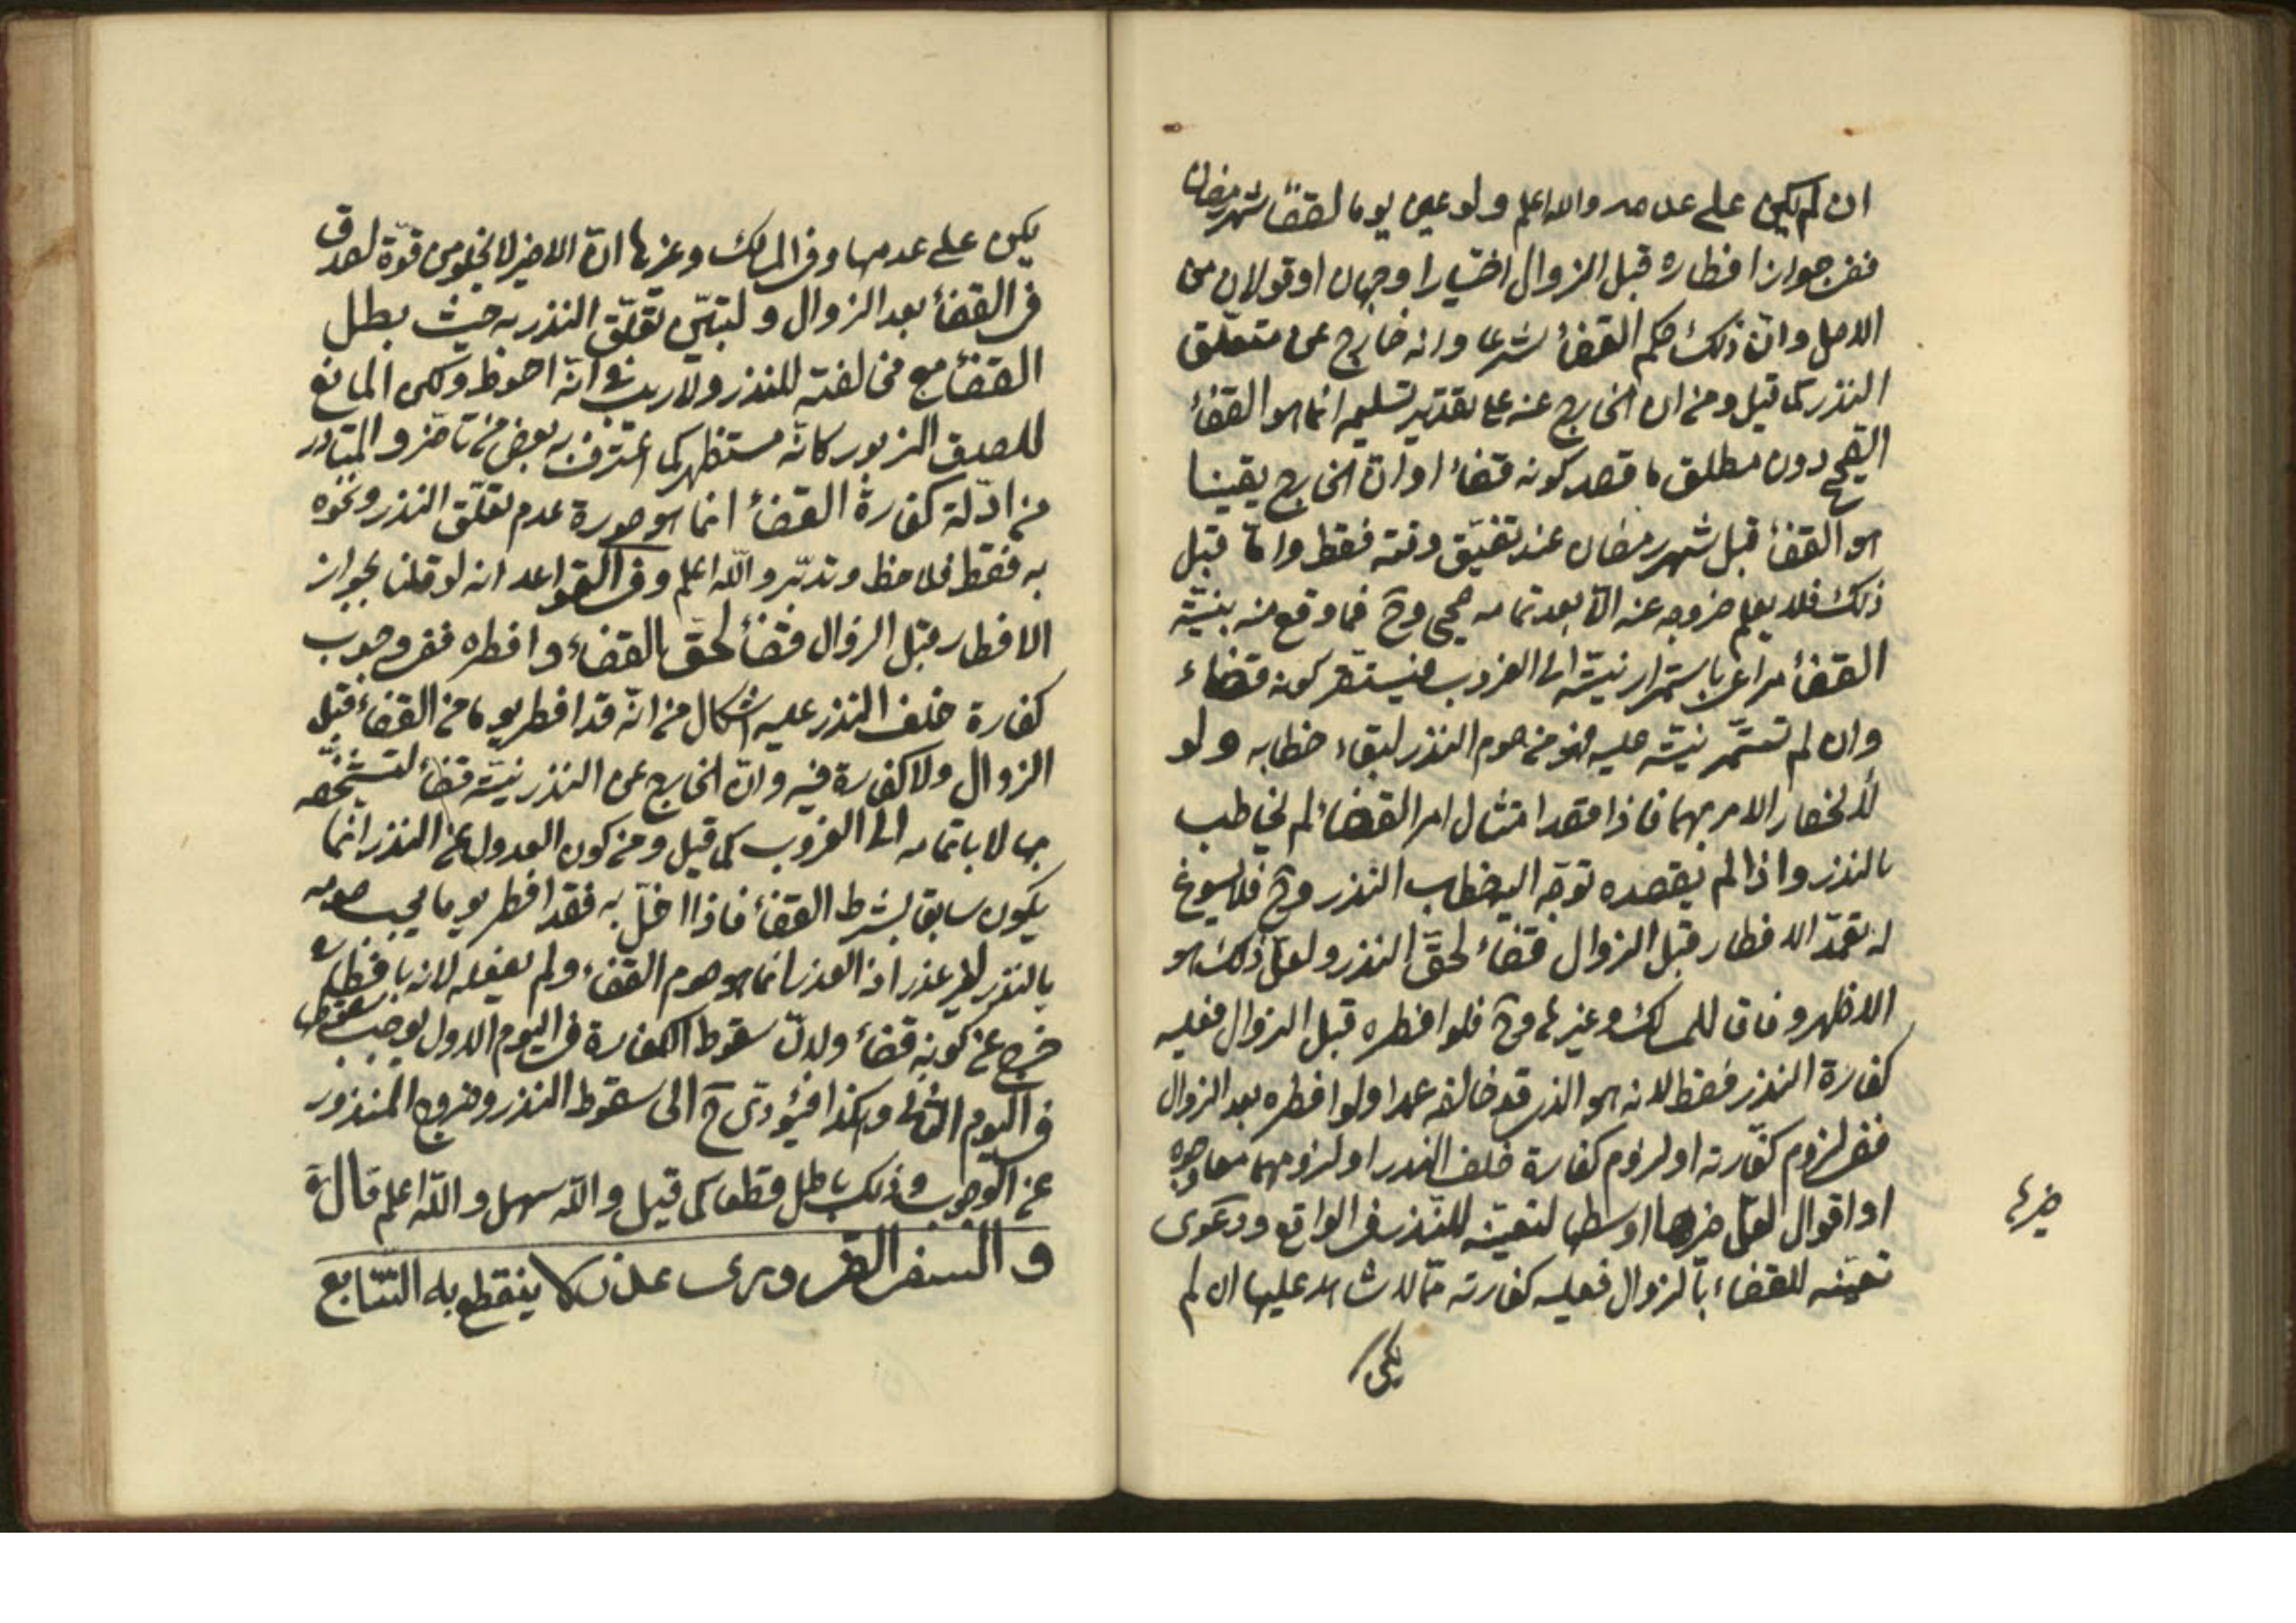 ان لم يكن على عدمه والله اعلم ولو عين يوما لقضاء شهر رمضان
ففي جواز افطاره قبل الزوال اختيارا وجهان او قولان من
الاصل وان ذلك حكم القضاء شرعا وانه خارج عن متعلق
النذر كما قيل ومن ان الخارج عنه على تقدير تسليمه انما هو القضاء
الصحيح دون مطلق ما قصد كونه قضاء او ان الخارج يقينا
هو القضاء قبل شهر رمضان عند تضيق وقته فقط واما قبل
ذلك فلا يعلم خروجه عنه الا بعد تمامه صحيحا وح فما وقع منه بنية
القضاء مراعى باستمرار نيته الى الغروب فيستقر كونه قضاء
وان لم تستمر نيته عليه فهو من صوم النذر لبقاء خطابه ولو
لانحصار الامر بهما فاذا قصد امتثال امر القضاء لم يخاطب
بالنذر واذا لم يقصده توجه اليه خطاب النذر وح فلا يسوغ
له تعمد الافطار قبل الزوال قضاء لحق النذر ولعل ذلك هو
الاظهر وفاقا للمسالك وغيرها وح فلو افطره قبل الزوال فعليه
كفارة النذر فقط لانه هو الذي قد خالفه عمدا ولو افطره بعد الزوال
ففي لزوم كفارته او لزوم كفارة خلف النذر او لزومهما معا وجوه
او اقوال لعل خيرها اوسطها لتعينه للنذر في الواقع ودعوى
خيرها
تعينه للقضاء بالزوال فعليه كفارته مما لا شاهد عليها ان لم
يكن
يكن على عدمها وفي المسالك وغيرها ان الاخير لا يخلو من قوة لصدق
في القضاء بعد الزوال ولتبين تعلق النذر به حيث بطل
القضاء مع مخالفته للنذر ولا ريب في انه احوط ولكن المانع
للصدق المزبور كانه مستظهر كما اعترف به بعض من تاخر والمتبادر
من ادلة كفارة القضاء انما هو صورة عدم تعلق النذر ونحوه
به فقط فلاحظ وتدبر والله اعلم وفي القواعد انه لو قلنا بجواز
الافطار قبل الزوال قضاء لحق القضاء وافطره ففي وجوب
كفارة خلف النذر عليه اشكال من انه قد افطر يوما من القضاء قبل
الزوال ولا كفارة فيه وان الخارج عن النذر نيته قضاء لتشخصه
بها لا باتمامه الى الغروب كما قيل ومن كون العدول عن النذر انما
يكون سابقا بشرط القضاء فاذا اخل به فقد افطر يوما يجب صومه
بالنذر لغير عذر اذ العذر انما هو صوم القضاء ولم يفعله لانه بافطاره
خرج عن كونه قضاء ولان سقوط الكفارة في اليوم الاول يوجب سقوطها
في اليوم الثاني وهكذا فيؤدي ح الى سقوط النذر وخروج المنذور
عن الوجوب وذلك باطل قطعا كما قيل والله سهل والله اعلم قال ره
و السفر الضروري عذر لا ينقطع به التتابع